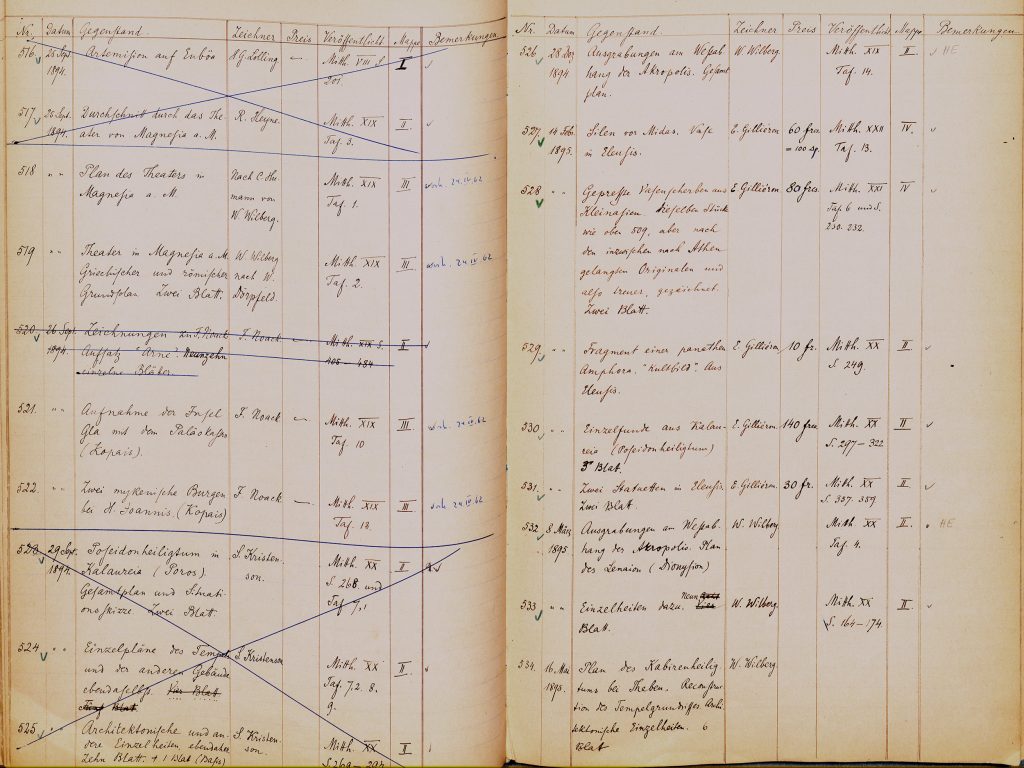 Nr. Datum Gegenstand. Zeichner Preis Veröffentlicht Mappe Bemerkungen
516 25 Sept. Artemision auf Euböa H G Lolling — Mitth. VIII S. I
1894. 201.
517 25 Sept. Durchschnitt durch das The- R. Heyne. Mitth. XIX II
1894. ater von Magnesia a. M. Taf. 3.
518 " " Plan des Theaters in Nach C. Hu Mitth. XIX III 24.IV.62
Magnesia a. M. mann von Taf. 1.
W. Wilberg.
519 " " Theater in Magnesia a. M. W. Wilberg Mitth. XIX III 24.IV.62
Griechischer und römischer nach W. Taf. 2.
Grundplan Zwei Blatt. Dörpfeld.
520 26 Sept. Zeichnungen zu F. Noack F. Noack — Mitth. XIX S. II
1894. Aufsatz "Arne". Neunzehn 405 - 484
einzelne Blätter
521. " " Aufnahme der Insel F. Noack — Mitth. XIX III 24.IV.62
Gla mit dem Paläokastro Taf. 10
(Kopais).
522. " " Zwei mykenische Burgen F. Noack — Mitth. XIX III 24.IV.62
bei H. Joannis. (Kopais) Taf. 13.
523. 29 Sept. Poseidonheiligtum in S. Kristen- Mitth. XX II
1894. Kalaureia (Poros). son. S. 268. und
Gesamtplan und Situati-
onsskizze. Zwei Blatt.
524 " " Einzelpläne des Tempels S. Kristenson Mitth. XX II
und der anderen Gebäude Taf. 7, 2. 8.
ebendaselbst. Vier Blatt 9.
Fünf Blatt
525 " " Architektonische und an- S. Kristen- Mitth. XX II
dere Einzelheiten ebendaher son.
Zehn Blatt. + 1 Blat (Basis)
Nr. Datum Gegenstand. Zeichner Preis Veröffentlicht Mappe Bemerkungen
526. 28 Dez. Ausgrabungen am Westab W. Wilberg Mitth XIX II. HE
1894. hang der Akropolis. Gesamt Taf. 14.
plan.
527. 14 Feb. Silen vor Midas. Vase E. Gilliéron 60 frcs Mitth. XXII IV.
1895. in Eleusis. = 100 Taf. 13.
528 " " Gepresste Vasenscherben aus E. Gilliéron 80 frcs. Mitth. XXI IV
Kleinasien. Dieselben Stücke Taf. 6 und S.
wie oben 509, aber nach 230. 232.
den inzwischen nach Athen
gelangten Originalen und
also treuer, gezeichnet.
Zwei Blatt.
529. " " Fragment einer panathen E. Gilliéron, 10 fr. Mitth. XX II
Amphora. "Kultbild". Aus S. 249.
Eleusis.
530 " " Einzelfunde aus Kalau- E. Gilliéron 140 frcs Mitth. XX II
reia (Poseidonheiligtum) S. 297-322
Blat.
531. " " Zwei Statuetten in Eleusis. E. Gilliéron 30 frs. Mitth. XX II
Zwei Blatt. S. 357. 359
532 8 März Ausgrabungen am Westab- W. Wilberg Mitth. XX II. HE
1895. hang der Akropolis. Plan Taf. 4.
des Lenaion (Dionysion)
533 " " Einzelheiten dazu. Neun W. Wilberg Mitth. XX II.
Blatt. S. 164-174.
534. 16. Mai Plan des Kabirenheilig W. Wilberg
1895. tums bei Theben. Reconstruc
tion des Tempelgrundrisses. Archi
tektonische Einzelheiten. 6
Blat